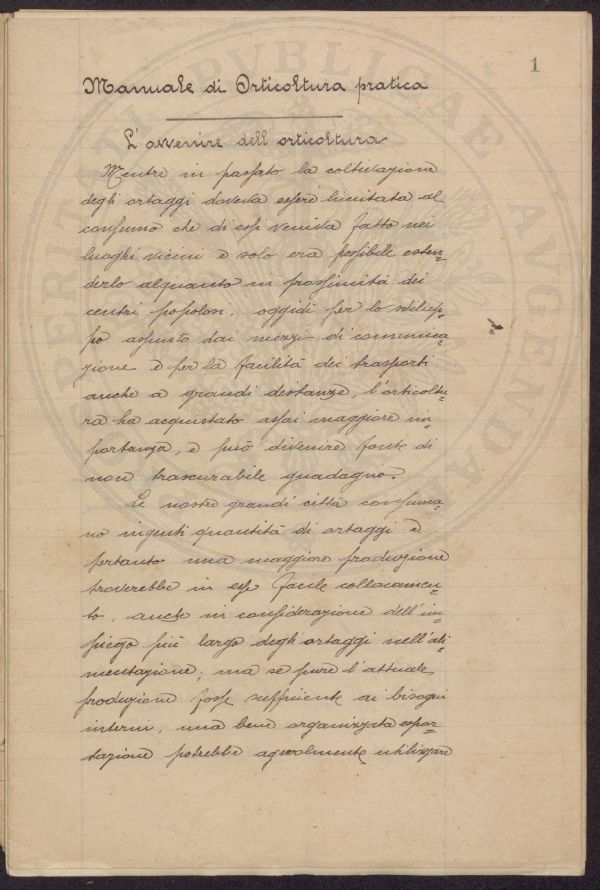 1
Manuale di Orticoltura pratica
L'avvenire dell'orticoltura
Mentre in passato la coltivazione
degli ortaggi doveva essere limitata al
consumo che di essi veniva fatto nei
luoghi vicini e solo era possibile esten-
derlo alquanto in prossimità dei
centri popolosi, oggidì per lo svilup-
po assunto dai mezzi di comunica-
zione e per la facilità dei trasporti
anche a grandi distanze, l'orticoltu-
ra ha acquistato assai maggiore im-
portanza, e può divenire fonte di
non trascurabile guadagno.
Le nostre grandi città consuma-
no ingenti quantità di ortaggi e
pertanto una maggiore produzione
troverebbe in esse facile collocamen-
to, anche in considerazione dell'im-
piego più largo degli ortaggi nell'ali-
mentazione; ma se pure l'attuale
produzione fosse sufficiente ai bisogni
interni, una bene organizzata espor-
tazione potrebbe agevolmente utilizzare